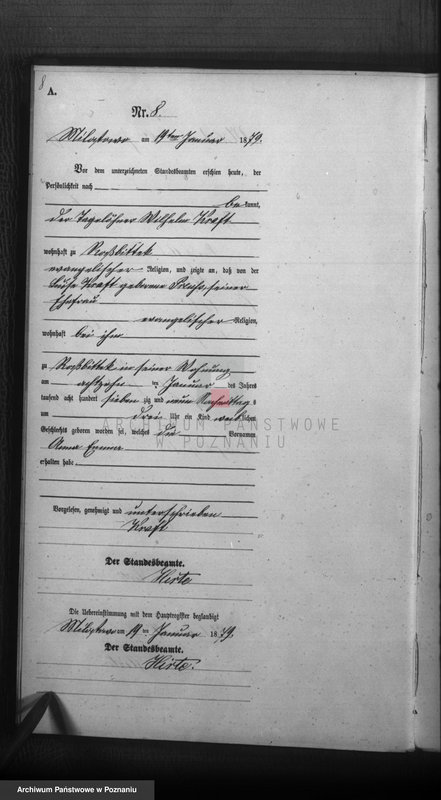 8
A.
Nr. 8.
Milostowo am 19ten Januar 1879.
Vor dem unterzeichneten Standesbeamten erschien heute, der
Persönlichkeit nach
be kannt,
der Tagelöhner Wilhelm Kraft
wohnhaft zu Roßbittek
evangelischer Religion, und zeigte an, daß von der
Luise Kraft geborene seiner
Ehefrau
evangelischer Religion,
wohnhaft bei ihm
zu Roßbittek in seiner Wohnung
am achtzehn ten Januar des Jahres
tausend acht hundert sieben zig und neun Nachmittag s
um drei Uhr ein Kind weib lichen
Geschlechts geboren worden sei, welches die Vornamen
Anna Emma
erhalten habe
Vorgelesen, genehmigt und unterschrieben
Kraft
Der Standesbeamte.
Hirte
Die Uebereinstimmung mit dem Hauptregister beglaubigt
am 19 ten Januar 1879.
Der Standesbeamte.
Hirte.
ARCHIWUM PAŃSTWOWE
W POZNANIU
Archiwum Państwowe w Poznaniu